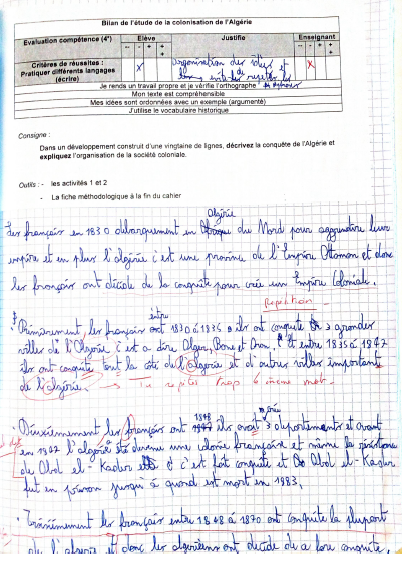 Bilan de l'étude de la colonisation de l'Algérie
Evaluation compétence (4e) Elève Justifie Enseignant
-- - + + + -- - + + +
Critères de réussites :
Pratiquer différents langages
(écrire)
X Organisation des idées et X
Je rends un travail propre et je vérifie l'orthographe
Mon texte est compréhensible
Mes idées sont ordonnées avec un exemple (argumenté)
J'utilise le vocabulaire historique
Consigne :
Dans un développement construit d'une vingtaine de lignes, décrivez la conquête de l'Algérie et
expliquez l'organisation de la société coloniale.
Outils : - les activités 1 et 2
- La fiche méthodologique à la fin du cahier
Algérie
Les français en 1830 débarquement en du Nord pour leur
empire et en plus l'algérie c'est une province de l'Empire Ottoman et donc
les français ont décidé de la conquête pour crée un Empire Coloniale.
Répétition
entre
Premièrement les français ont 1830 à 1835 ils ont conquéte 3 grandes
villes de l'Algérie c'est a dire Alger, Bone et Oran. Et entre 1835 à 1847
ils ont conquête tout la côte de l'algérie et d'autres villes important
de l'algérie. → Tu répètes trop le même mot.
Deuxièmement les français ont 1848 ils avait 3 départements et avant
en 1847 l'algérie été devenu une colonie française et même la résistance
de Abd el-Kader c'est fait conquête et Abd el-Kader
fut en prison jusqu'à quand est mort en 1983.
Troisièmement les français entre 1848 à 1870 ont conquête la plupart
de l'algérie et donc les algériens ont décidé